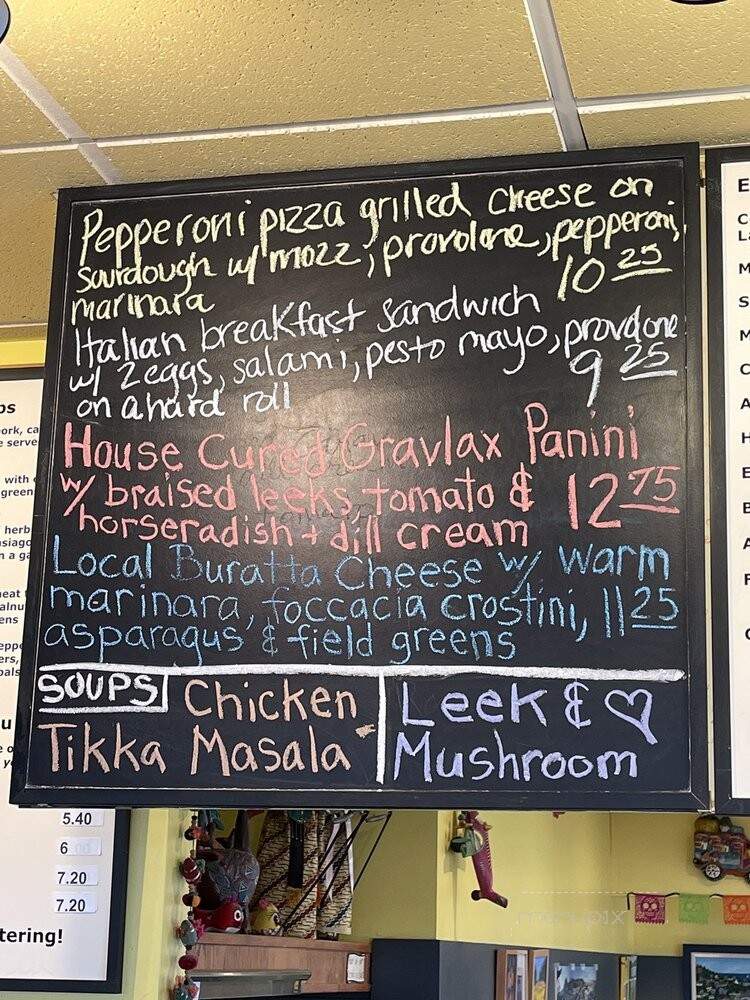 Pepperoni pizza grilled cheese on
sourdough w/ mozz, provolone, pepperoni,
marinara 10 25
Italian breakfast sandwich
w/ 2 eggs, salami, pesto mayo, provolone
on a hard roll 9 25
House Cured Gravlax Panini
w/ braised leeks, tomato &
horseradish + dill cream 12 75
Local Buratta Cheese w/ warm
marinara, foccacia crostini, 11 25
asparagus & field greens
SOUPS Chicken
Tikka Masala
Leek & ♡
Mushroom
5.40
6
7.20
7.20
tering!